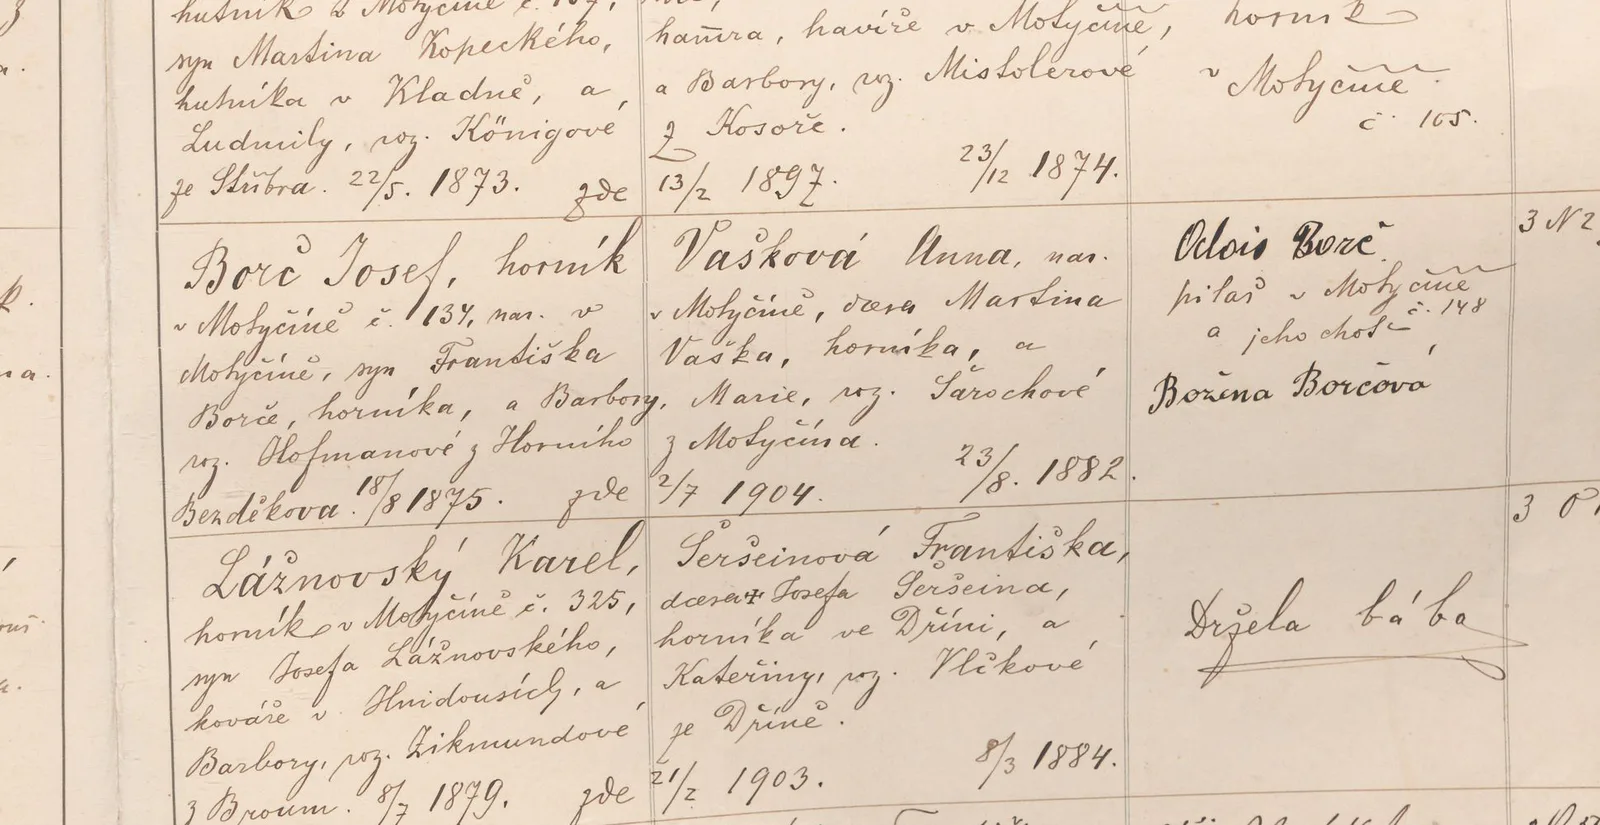 hutník v Motyčíně č.
syn Martina Kopeckého,
hutníka v Kladně, a
Ludmily, roz. Königové
ze Stříbra. 22/5. 1873. zde
hamra, havíře v Motyčíně,
a Barbory, roz. Mistolerové
z Kosoře.
13/2 1897. 23/12 1874.
horník
v Motyčíně
č. 105.
Borč Josef, horník
v Motyčíně č. 134, nar. v
Motyčíně, syn Františka
Borče, horníka, a Barbory,
roz. Hofmanové z Horního
Bezděkova. 18/8 1875. zde
Vašková Anna, nar.
v Motyčíně, dcera Martina
Vaška, horníka, a
Marie, roz. Šárochové
z Motyčína.
2/7 1904. 23/8. 1882.
Borč
pilař v Motyčíně
č. 148
a jeho choť
Božena Borčová
3 N 2
Lážnovský Karel,
horník v Motyčíně č. 325,
syn Josefa Lážnovského,
kováře v Hnidousích, a
Barbory, roz. Zikmundové
z Broum. 8/7 1879. zde
Seršeinová Františka,
dcera Josefa Seršeina,
horníka ve Dříni, a
Kateřiny, roz. Vlčkové
ze Dříně.
21/2 1903. 8/3 1884.
Držela bába
3